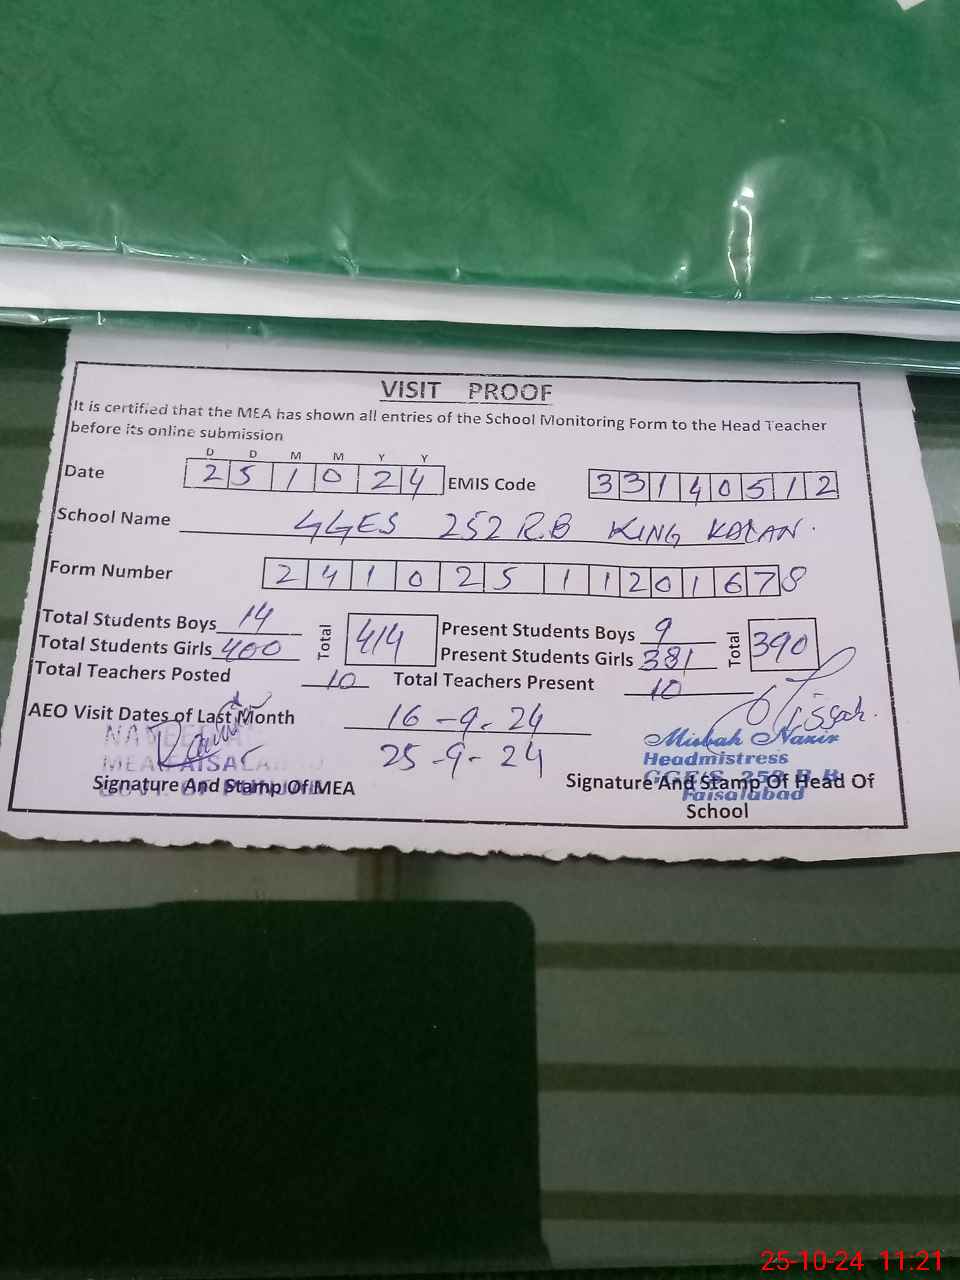 VISIT PROOF
It is certified that the MEA has shown all entries of the School Monitoring Form to the Head Teacher
before its online submission
D D M M Y Y
Date 2 5 1 0 2 4 EMIS Code 3 3 1 4 0 5 1 2
School Name GGES 252 R.B KING KALAN.
Form Number 2 4 1 0 2 5 1 1 2 0 1 6 7 8
Total Students Boys 14 Total 414 Present Students Boys 9 Total 390
Total Students Girls 400 Present Students Girls 381
Total Teachers Posted 10 Total Teachers Present 10
AEO Visit Dates of Last Month 16-9-24
25-9-24
MEA FAISALABAD
Signature And Stamp Of MEA
Misbah Nazir
Headmistress
GGE/S 252 R.B
Faisalabad
Signature And Stamp Of Head Of
School
25-10-24 11:21